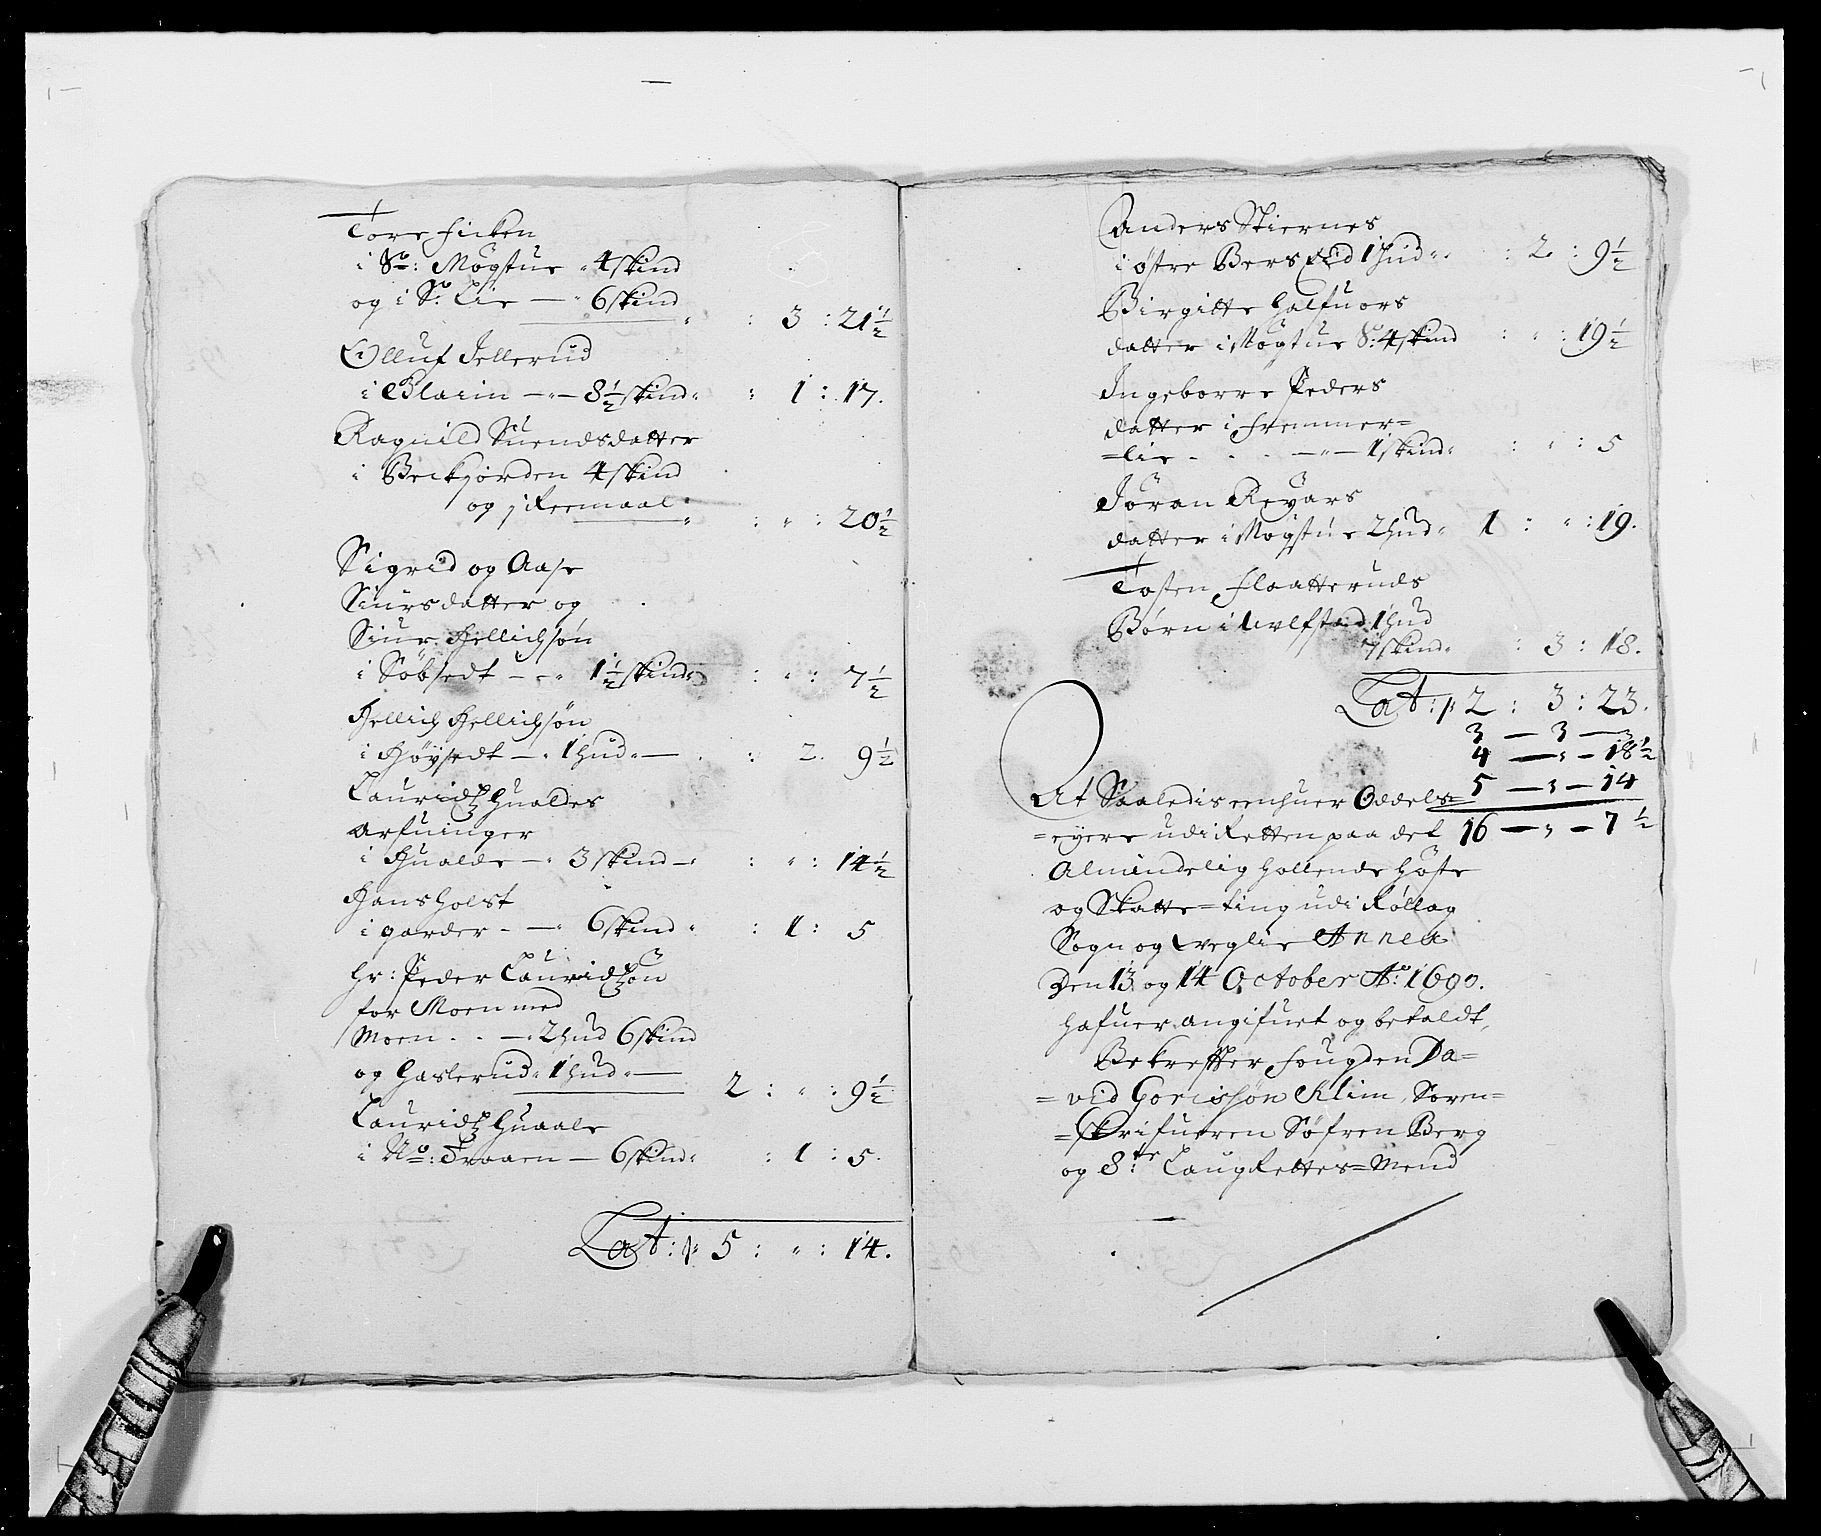 Tore Ficken
i Nº: Møgstue " 4 skind
og i Sº: Lie — " 6 skind
" : 3 : 21½
Olluf Jellerud
i Blaein — " — 8½ skind " : 1 : 17.
Ragnild Suendsdatter
i Beckjorden 4 skind
og j Reemaal
" : " : 20½
Sigrid og Aase
Siursdatter og
Siur Hellichsøn
i Søbsedt — " 1½ skind " : " : 7½
Hellich Hellichsøn
i Høysedt — " 1 hud " — : 2. 9½
Lauridtz Hualdes
Arfuinger
i Hualde — " 3 skind — " : " : 14½
Hans Holst
i garder - — " 6 skind " : 1 : 5
hr: Peder Lauridtzøn
for Moen med
Moen . . — " 2 hud 6 skind
og Haslerud " 1 hud " —
2 : " : 9½
Lauridtz Huaale
i Nº: Traaen — 6 skind " : 1 : 5.
Lat: p 5 : " : 14.
Anders Stiernes
i østre Bersved 1 hud " : 2 : 9½
Birgitte Halfuors
datter i Møgstue Sº: 4 skind : " : 19½
Ingeborre Peders
datter i Fremmer=
=lie - . . — " — 1 skind " : " : 5
Jøran Reyars
datter i Møgstue 2 hud " 1 : " : 19.
Tosten Flaatteruds
Børn i Uvlfsted 1 hud
7 skind " : 3 : 18.
Lat: p 2 : 3 : 23.
3 — 3 — 3
4 — " — 18½
5 — " — 14
At Saaledis eenhuer Oddels=
=eyere udi Retten paa det 16 — " — 7½
Almindelig hollende Høste
og Skatte=ting udi Rollag
Sogn og Weglie Annex
Den 13 og 14 October Aº: 1690.
hafuer angifuet og betaldt,
Bekreffter fougden Da=
=vid Gorissøn Klim, Soren=
=skrifueren Søfren Berg
og 8:te LaugRettes=Mend